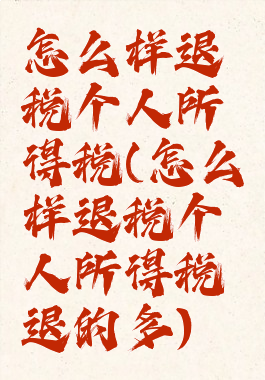 怎么样退
税个人所
得税(怎么
样退税个
人所得税
退的多)